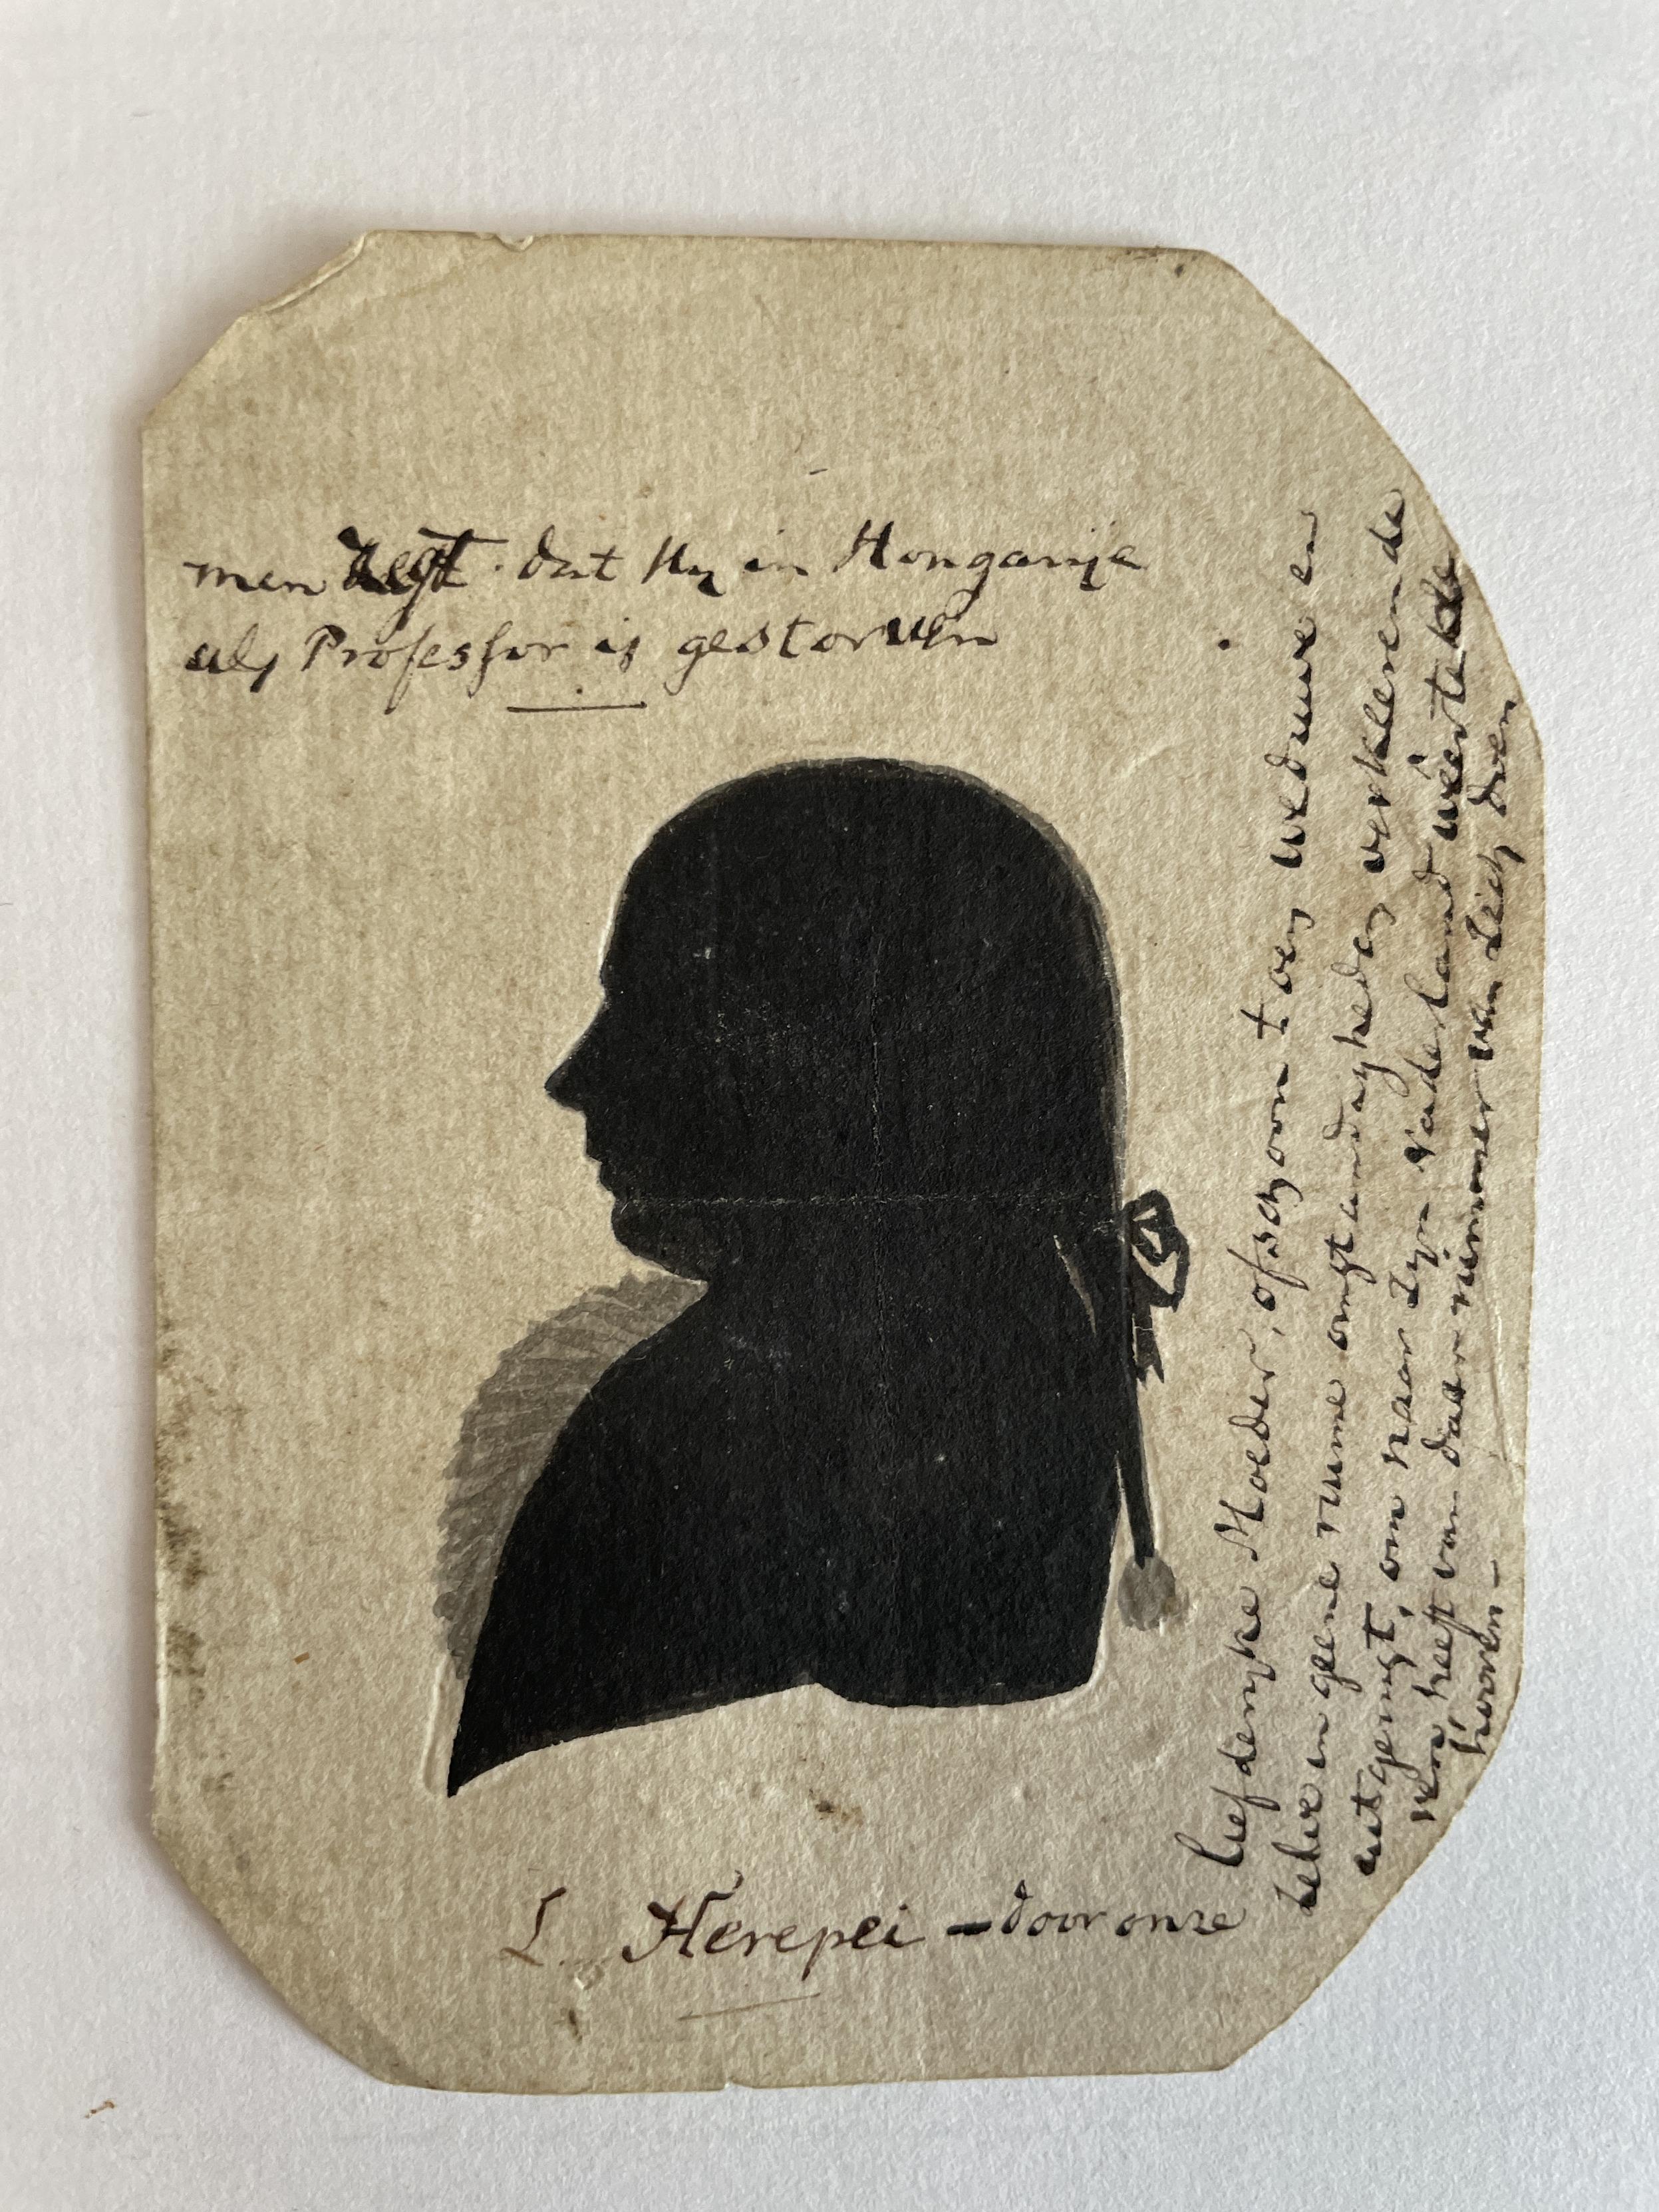 men zegt dat Hy in Hongarije
als Professor is gestorven
L. Herepei - door onze
liefderyke Moeder, ofschoon toen weduwe en
zelve in geene ruime omstandigheden verkeerende
uitgerust, om naar Zyn Vaderland weer te
heeft van daar nimmer van zich doen
hooren -